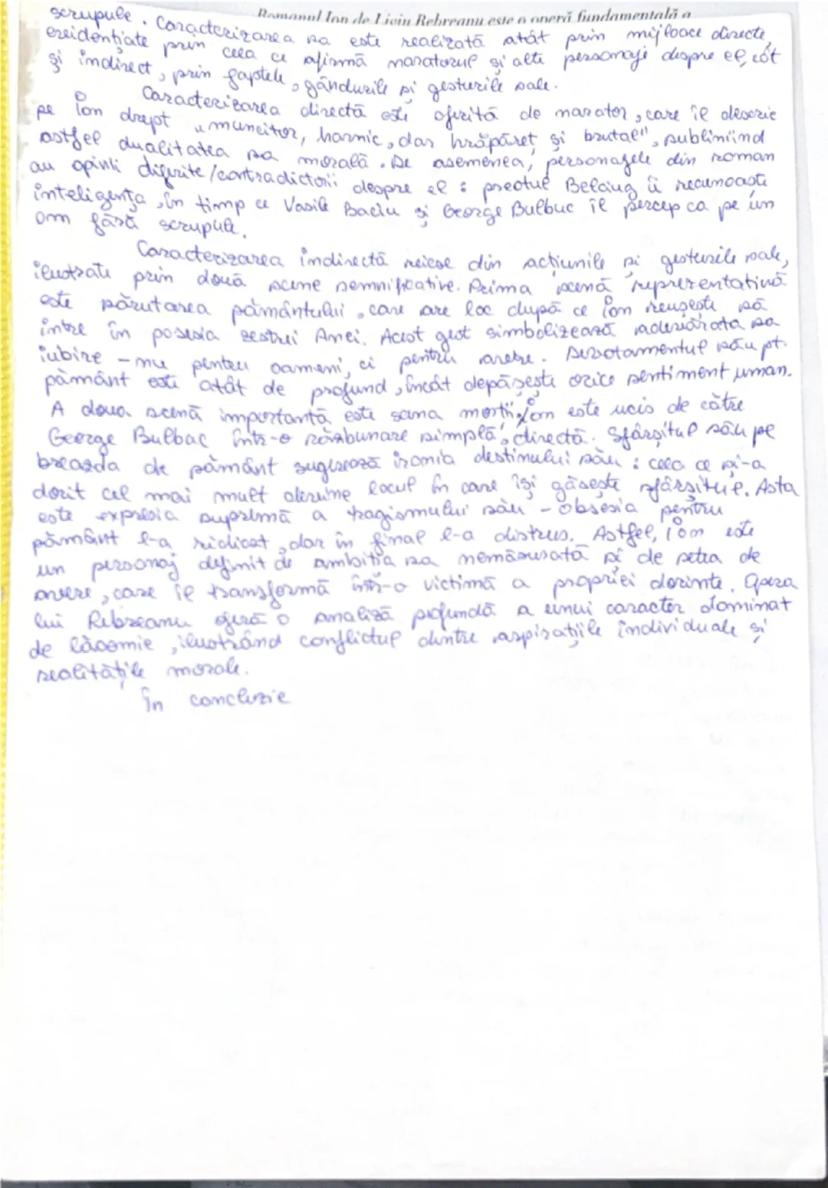 Romanul Ion de Liviu Rebreanu este o operă fundamentală a
scrupule. Caracterizarea sa este realizată atât prin mijloace directe,
evidențiate prin ceea ce afirmă naratorul și alte personaje despre el, cât
și indirect, prin faptele, gândurile și gesturile sale.
Caracterizarea directă este oferită de narator, care îl descrie
pe Ion drept „muncitor, harnic, dar hrăpăreț și brutal", subliniind
astfel dualitatea sa morală. De asemenea, personajele din roman
au opinii diferite/contradictorii despre el: preotul Belciug îi recunoaște
inteligența, în timp ce Vasile Baciu și George Bulbuc îl percep ca pe un
om fără scrupule.
Caracterizarea indirectă reiese din acțiunile și gesturile sale,
ilustrate prin două scene semnificative. Prima scenă reprezentativă
este sărutarea pământului, care are loc după ce Ion reușește să
intre în posesia zestrei Anei. Acest gest simbolizează adevărata sa
iubire - nu pentru oameni, ci pentru avere. Devotamentul său pt.
pământ este atât de profund, încât depășește orice sentiment uman.
A doua scenă importantă este scena morții. Ion este ucis de către
George Bulbuc într-o răzbunare simplă, directă. Sfârșitul său pe
breazda de pământ sugerează ironia destinului său: ceea ce și-a
dorit cel mai mult devine locul în care își găsește sfârșitul. Asta
este expresia supremă a tragismului său - obsesia pentru
pământ l-a ridicat, dar în final l-a distrus. Astfel, Ion este
un personaj definit de ambiția sa nemăsurată și de setea de
avere, care îl transformă într-o victimă a propriei dorințe. Opera
lui Rebreanu oferă o analiză profundă a unui caracter dominat
de lăcomie, ilustrând conflictul dintre aspirațiile individuale și
realitățile morale.
În concluzie